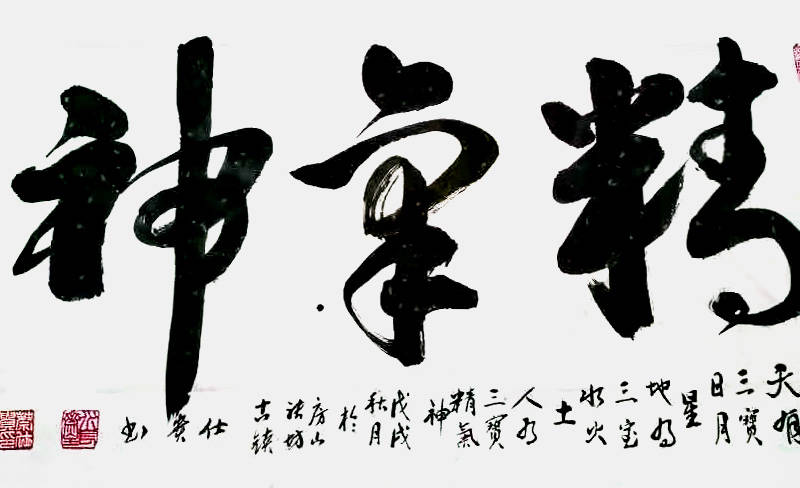 精氣神
天有
三寶
日月
星
地有
三宝
水火
土
人有
三寶
精氣
神
戊戌
秋月
於
房山
张坊
古鎮
仕
书